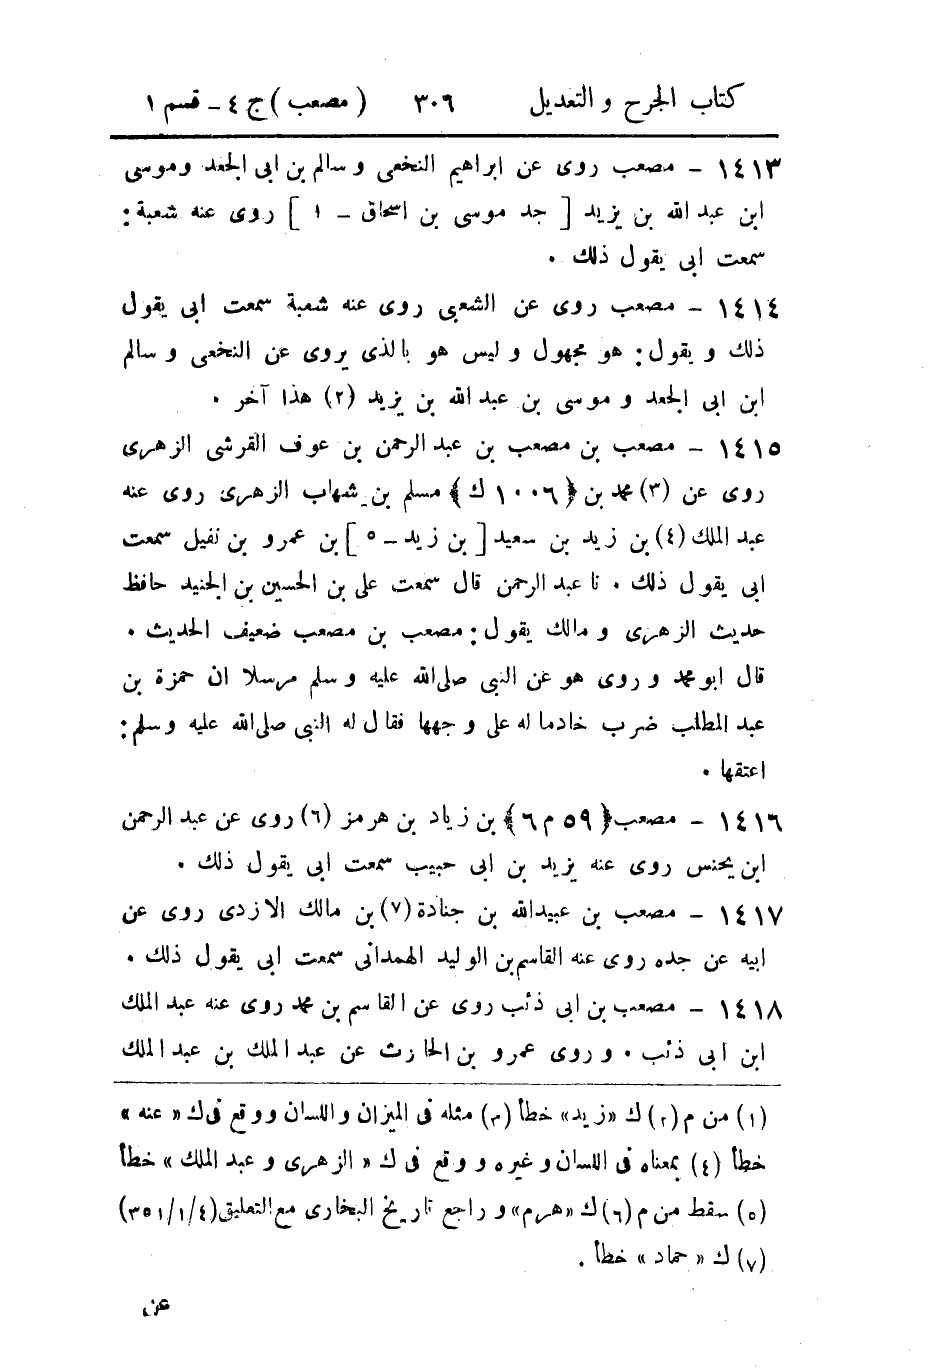 كتاب الجرح و التعديل ٣٠٦ (مصعب) ج ٤ - قسم ١
١٤١٣ - مصعب روى عن ابراهيم النخعى و سالم بن ابى الجعد وموسى
ابن عبد الله بن يزيد [ جد موسى بن اسحاق - ١ ] روى عنه شعبة:
سمعت ابى يقول ذلك .
١٤١٤ - مصعب روى عن الشعبى روى عنه شعبة سمعت ابى يقول
ذلك و يقول: هو مجهول و ليس هو بالذى يروى عن النخعى و سالم
ابن ابى الجعد و موسى بن عبد الله بن يزيد (٢) هذا آخر .
١٤١٥ - مصعب بن مصعب بن عبد الرحمن بن عوف القرشى الزهرى
روى عن (٣) محمد بن ﴿١٠٠٦ ك﴾ مسلم بن شهاب الزهرى روى عنه
عبد الملك (٤) بن زيد بن سعيد [ بن زيد - ٥ ] بن عمرو بن نفيل سمعت
ابى يقول ذلك . نا عبد الرحمن قال سمعت على بن الحسين بن الجنيد حافظ
حديث الزهرى و مالك يقول: مصعب بن مصعب ضعيف الحديث .
قال ابو محمد و روى هو عن النبى صلى الله عليه و سلم مرسلا ان حمزة بن
عبد المطلب ضرب خادما له على وجهها فقال له النبى صلى الله عليه و سلم:
اعتقها .
١٤١٦ - مصعب ﴿٥٩ م ٦﴾ بن زياد بن هرمز (٦) روى عن عبد الرحمن
ابن يحنس روى عنه يزيد بن ابى حبيب سمعت ابى يقول ذلك .
١٤١٧ - مصعب بن عبيد الله بن جنادة (٧) بن مالك الازدى روى عن
ابيه عن جده روى عنه القاسم بن الوليد الهمدانى سمعت ابى يقول ذلك .
١٤١٨ - مصعب بن ابى ذئب روى عن القاسم بن محمد روى عنه عبد الملك
ابن ابى ذئب . و روى عمرو بن الحارث عن عبد الملك بن عبد الملك
(١) من م (٢) ك «زيد» خطأ (٣) مثله فى الميزان و اللسان و وقع فى ك «عنه»
خطأ (٤) بمعناه فى اللسان و غيره و وقع فى ك «الزهرى و عبد الملك» خطأ
(٥) سقط من م (٦) ك «هرم» و راجع تاريخ البخارى مع التعليق (٣٥١/١/٤)
(٧) ك «حماد» خطأ .
عن